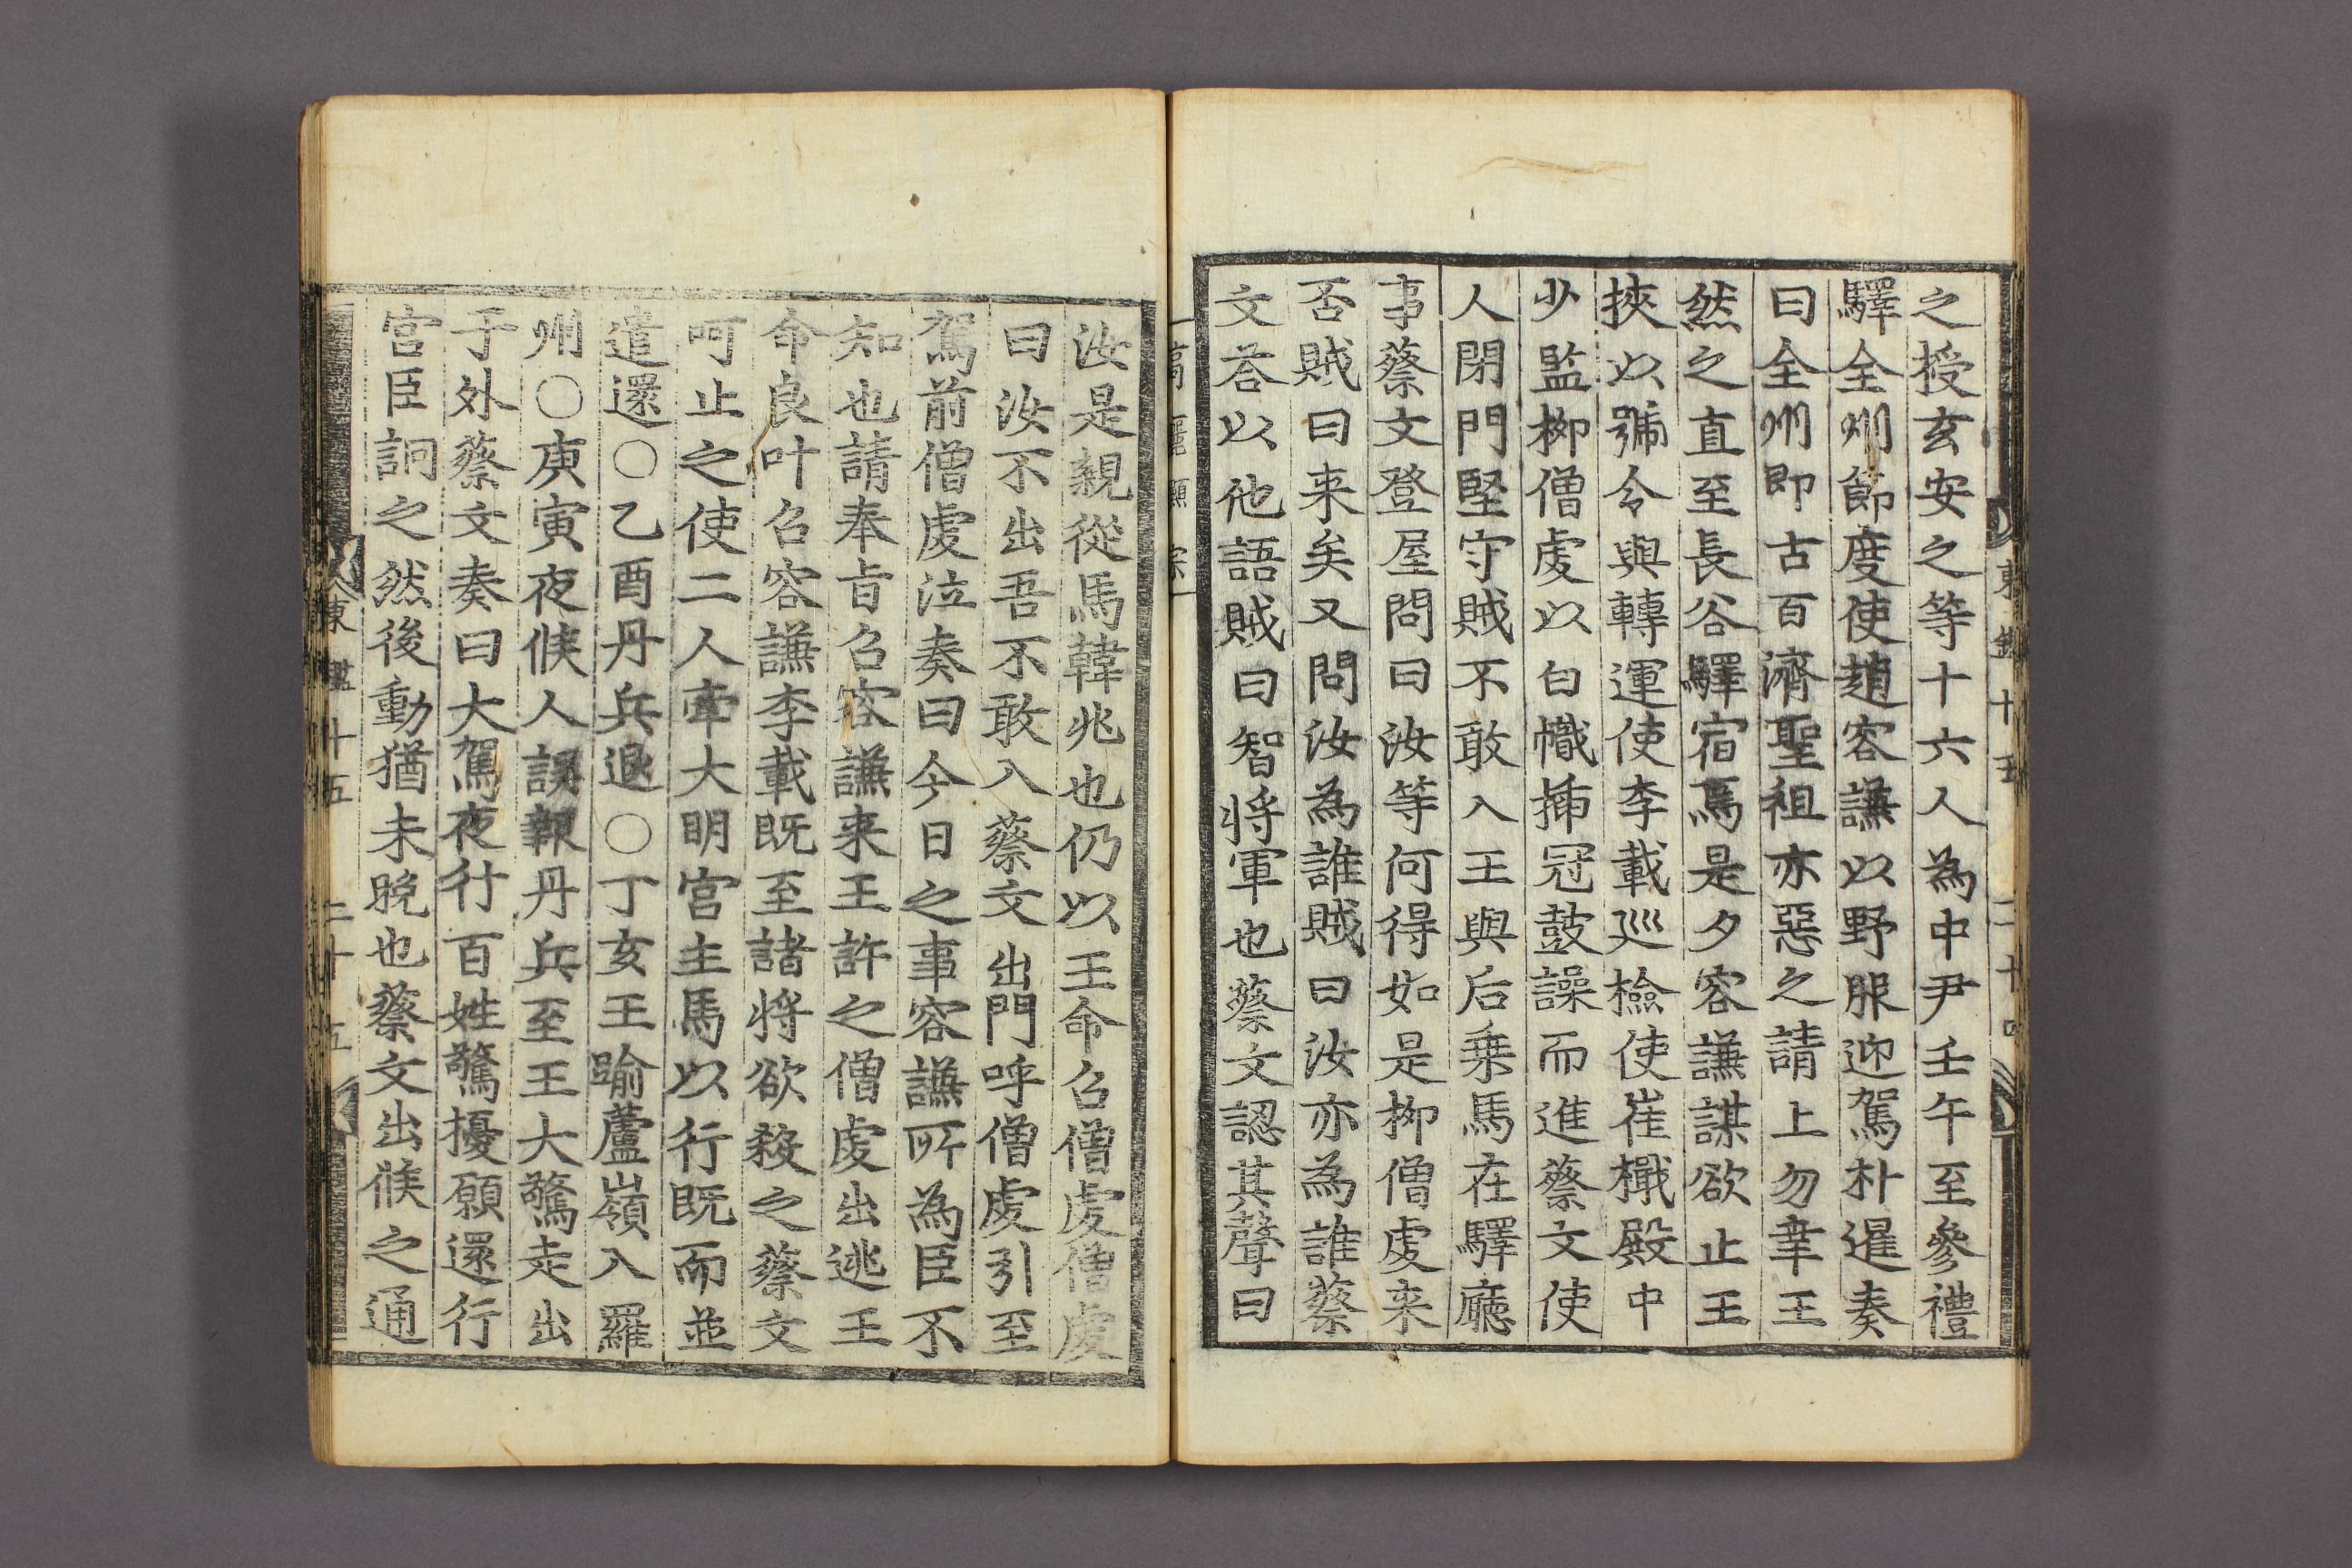 之授玄安之等十六人為中尹壬午至參禮
驛全州節度使趙容謙以野服迎駕朴暹奏
曰全州即古百濟聖祖亦惡之請上勿幸王
然之直至長谷驛宿焉是夕容謙謀欲止王
挾以號令與轉運使李載巡檢使崔檝殿中
少監柳僧虔以白幟揷冠鼓譟而進蔡文使
人閉門堅守賊不敢入王與后乗馬在驛廳
事蔡文登屋問曰汝等何得如是柳僧虔来
否賊曰来矣又問汝為誰賊曰汝亦為誰蔡
文荅以他語賊曰智將軍也蔡文認其聲曰
東鑑十五
二十四
高麗顯宗
汝是親從馬韓兆也仍以王命召僧虔僧虔
曰汝不出吾不敢入蔡文出門呼僧虔引至
駕前僧虔泣奏曰今日之事容謙所為臣不
知也請奉旨召容謙来王許之僧虔出逃王
命良叶召容謙李載既至諸將欲殺之蔡文
呵止之使二人牽大明宫主馬以行既而並
遣還○乙酉丹兵退○丁亥王踰蘆嶺入羅
州○庚寅夜候人誤報丹兵至王大驚走出
于外蔡文奏曰大駕夜行百姓驚擾願還行
宫臣詗之然後動猶未晚也蔡文出候之通
東鑑十五
二十五